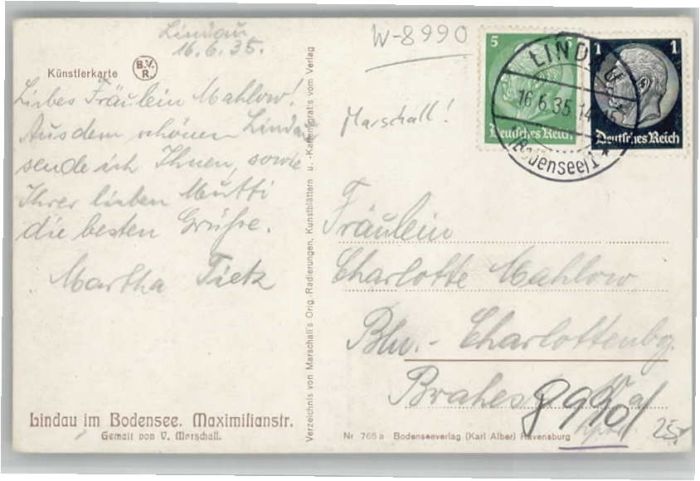 Lindau
16.6.35.
W-8990
Künstlerkarte
B.V.
R.
Liebes Fräulein Mahlow!
Aus dem schönen Lindau
sende ich Ihnen, sowie
Ihrer lieben Mutti
die besten Grüße.
Martha Tietz
Lindau im Bodensee. Maximilianstr.
Gemalt von V. Marschall.
Verzeichnis von Marschall's Orig. Radierungen, Kunstblättern u. -Karten gratis vom Verlag
Marschall!
5
Deutsches Reich
1
Deutsches Reich
LINDAU
16.6.35.14
(Bodensee)1
Fräulein
Charlotte Mahlow
Bln.- Charlottenbg.
Brahestr.
8990/
25.-
Nr 765 a Bodenseeverlag (Karl Alber) Ravensburg